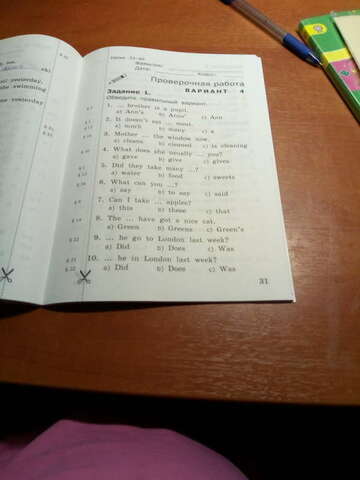 Фамилия:
Дата:
Класс:
Проверочная работа
Задание 1. ВАРИАНТ 4
Обведите правильный вариант.
1. ... brother is a pupil.
a) Ann's b) Anns' c) Ann
2. It doesn't eat ... meat.
a) much b) many c) a
3. Mother ... the window now.
a) cleans b) cleaned c) is cleaning
4. What does she usually ... you?
a) gave b) give c) gives
5. Did they take many ...?
a) water b) food c) sweets
6. What can you ...?
a) say b) to say c) said
7. Can I take ... apples?
a) this b) these c) that
8. The ... have got a nice cat.
a) Green b) Greens c) Green's
9. ... he go to London last week?
a) Did b) Does c) Was
10. ... he in London last week?
a) Did b) Does c) Was
31
yesterday.
swimming
yesterday